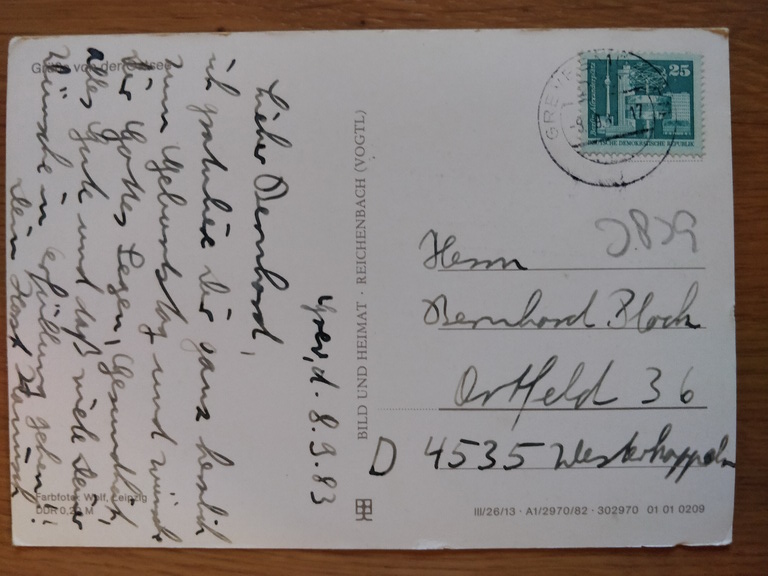 Grüße von der Ostsee
Grev, d. 8.9.83
Lieber Bernhard,
ich gratuliere Dir ganz herzlich
zum Geburtstag und wünsche
Dir Gottes Segen, Gesundheit,
alles Gute und daß viele Deiner
Wünsche in Erfüllung gehen!
Dein Horst
Farbfoto: Wolf, Leipzig
DDR 0,20 M
BILD UND HEIMAT · REICHENBACH (VOGTL)
GREVE
25
DEUTSCHE DEMOKRATISCHE REPUBLIK
Herrn
Bernhard Block
Ortfeld 36
D 4535 Westerkappeln
III/26/13 · A1/2970/82 · 302970 01 01 0209